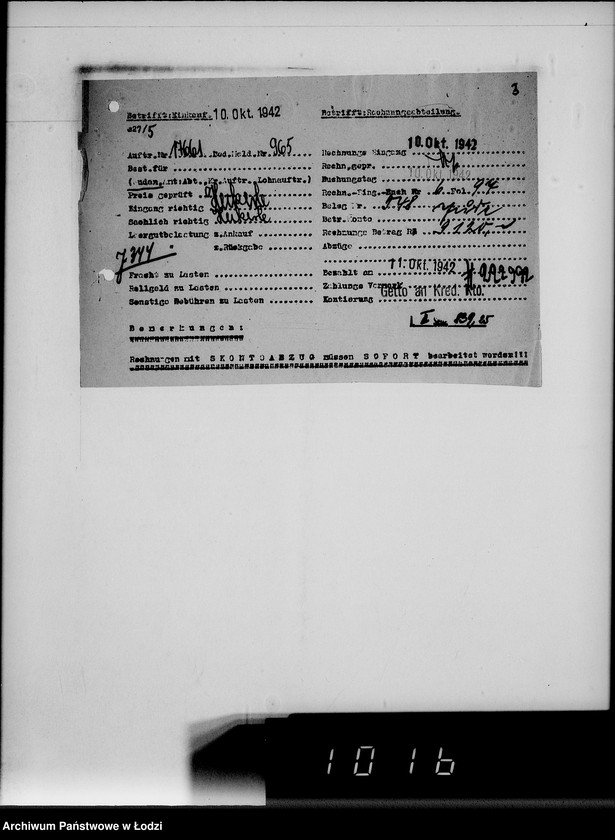 3
Betrifft: Einkauf. 10. Okt. 1942
Betrifft: Rechnungsabteilung.
a27/5
Auftr. Nr. 17661 Bed. Meld. Nr. 965
Best. für
(Auftr. Lohnauftr.)
Preis geprüft
Eingang richtig
Sachlich richtig
Leergutbelastung z. Ankauf
z. Rückgabe
J 344
Fracht zu Lasten
Rollgeld zu Lasten
Sonstige Gebühren zu Lasten
Rechnungs Eingang 10. Okt. 1942
Rechn. gepr.
Buchungstag 10. Okt. 1942
Rechn.-Eing.-Buch Nr 6. Fol. 94
Beleg Nr.
Betr. Konto
Rechnungs Betrag RM 9120,-
Abzüge
Bezahlt am 11. Okt. 1942
Zahlungs Vermerk
Getto an Kred. Kto.
Kontierung
Bemerkungen:
Rechnungen mit SKONTOABZUG müssen SOFORT bearbeitet werden!!!
1016
Archiwum Państwowe w Łodzi